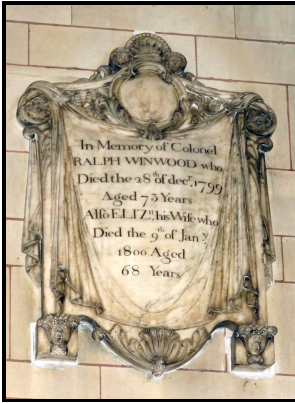 In Memory of Colonel
RALPH WINWOOD who
Died the 28th of decr. 1799
Aged 73 Years
Alſo ELIZ:, his Wife who
Died the 9th of Jany
1800 Aged
68 Years